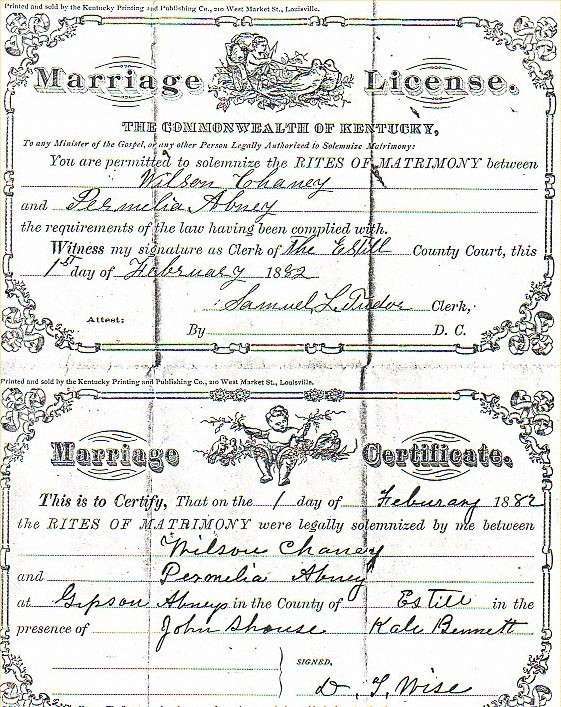 Printed and sold by the Kentucky Printing and Publishing Co., 210 West Market St., Louisville.
Marriage License.
THE COMMONWEALTH OF KENTUCKY,
To any Minister of the Gospel, or any other Person Legally Authorized to Solemnize Matrimony:
You are permitted to solemnize the RITES OF MATRIMONY between
Wilson Chaney
and Permelia Abney
the requirements of the law having been complied with.
Witness my signature as Clerk of The Estill County Court, this
1st day of February 1882
Samuel L. Tudor Clerk,
Attest:
By D. C.
Printed and sold by the Kentucky Printing and Publishing Co., 210 West Market St., Louisville.
Marriage Certificate.
This is to Certify, That on the 1 day of Feburary 1882
the RITES OF MATRIMONY were legally solemnized by me between
Wilson Chaney
and Permelia Abney
at Gipson Abneys in the County of Estill in the
presence of John Shouse Kale Bennett
SIGNED,
D. T. Wise